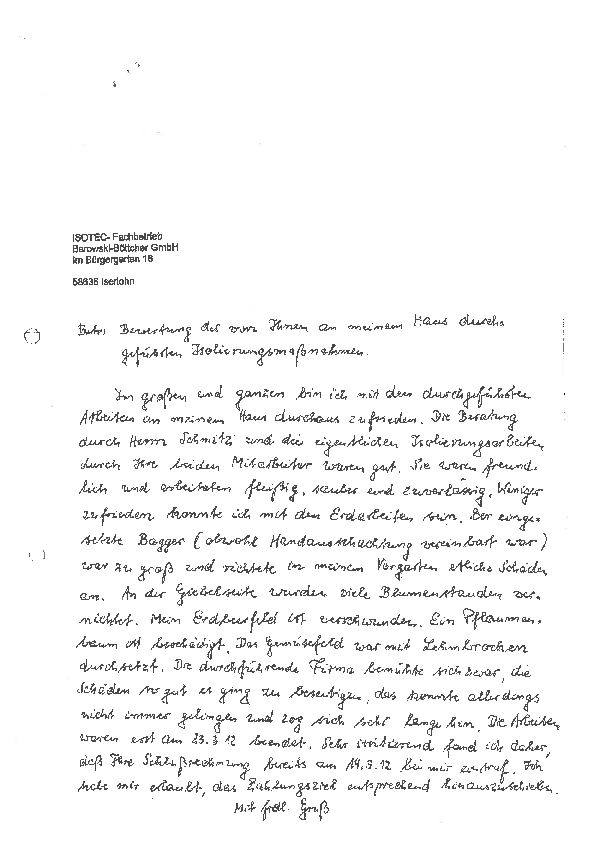 ISOTEC- Fachbetrieb
Barowski-Böttcher GmbH
Im Bürgergarten 16
58636 Iserlohn
Betr: Bewertung der von Ihnen an meinem Haus durchge
geführten Isolierungsmaßnahmen.
Im großen und ganzen bin ich mit den durchgeführten
Arbeiten an meinem Haus durchaus zufrieden. Die Beratung
durch Herrn Schmitz und die eigentlichen Isolierungsarbeiten
durch Ihre beiden Mitarbeiter waren gut. Sie waren freund-
lich und arbeiteten fleißig, sauber und zuverlässig. Weniger
zufrieden konnte ich mit den Erdarbeiten sein. Der einge-
setzte Bagger (obwohl Handausschachtung vereinbart war)
war zu groß und richtete in meinem Vorgarten etliche Schäden
an. An der Giebelseite wurden viele Blumenstauden ver-
nichtet. Mein Erdbeerfeld ist verschwunden. Ein Pflaumen-
baum ist beschädigt. Das Gemüsefeld war mit Lehmbrocken
durchsetzt. Die durchführende Firma bemühte sich zwar, die
Schäden so gut es ging zu beseitigen, das konnte allerdings
nicht immer gelingen und zog sich sehr lange hin. Die Arbeiten
waren erst am 23.3.12 beendet. Sehr irritierend fand ich daher,
daß Ihre Schlußrechnung bereits am 14.3.12 bei mir eintraf. Ich
habe mir erlaubt, das Zahlungsziel entsprechend hinauszuschieben.
Mit frdl. Gruß